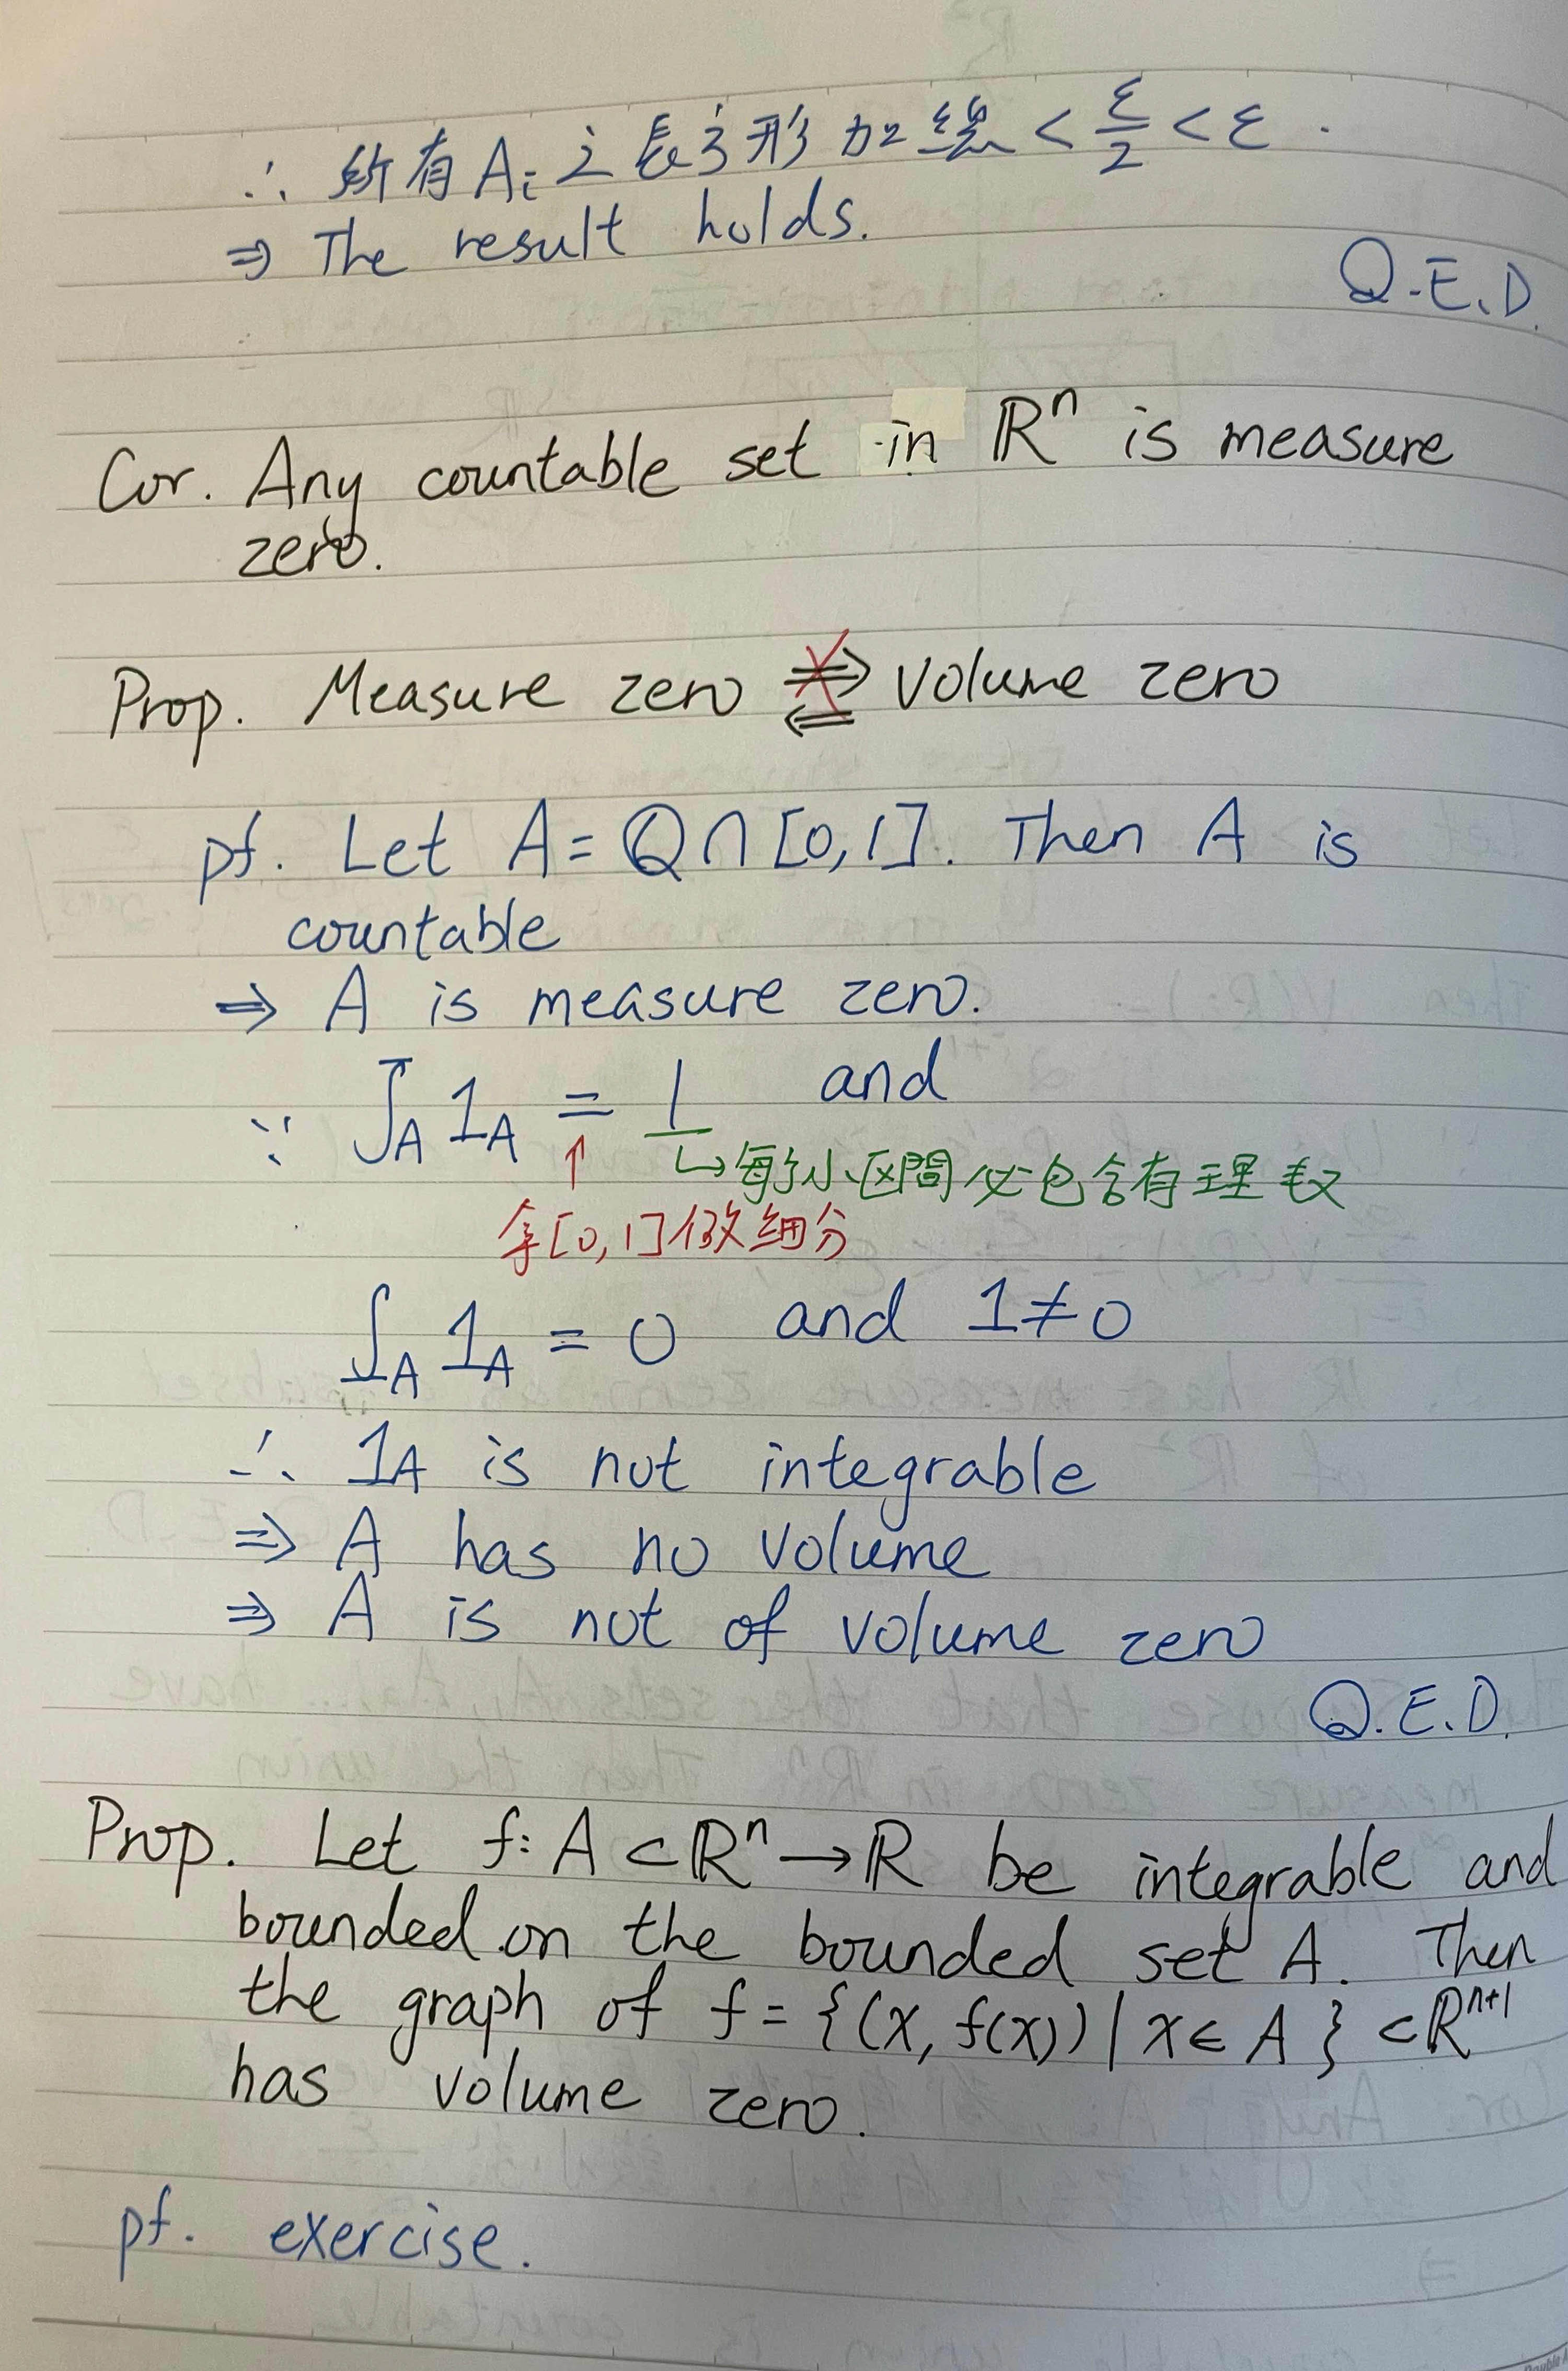 ∴ 所有 Aᵢ 之長方形加總 < ε/2 < ε.
⇒ The result holds.
Q.E.D.
Cor. Any countable set in ℝⁿ is measure
zero.
Prop. Measure zero ⇏ ⇐ volume zero
pf. Let A = ℚ∩[0,1]. Then A is
countable
⇒ A is measure zero.
∵ ∫̅_A 1_A = 1 and
↳ 每個小区間必包含有理数
↑
拿[0,1]做細分
∫̲_A 1_A = 0 and 1≠0
∴ 1_A is not integrable
⇒ A has no volume
⇒ A is not of volume zero
Q.E.D.
Prop. Let f: A⊂ℝⁿ→ℝ be integrable and
bounded on the bounded set A. Then
the graph of f = {(x, f(x)) | x∈A} ⊂ℝⁿ⁺¹
has volume zero.
pf. exercise.